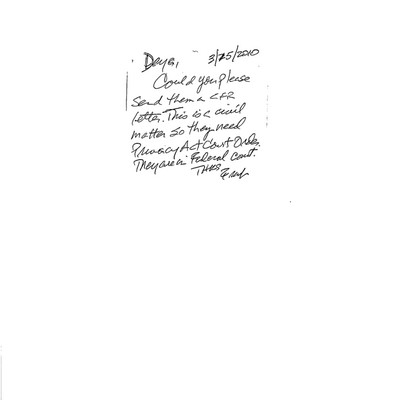 3/25/2010
Could you please
send them a CFR
letter. This is a civil
matter so they need
Privacy Act Court Order.
They are in Federal Court.
THKS